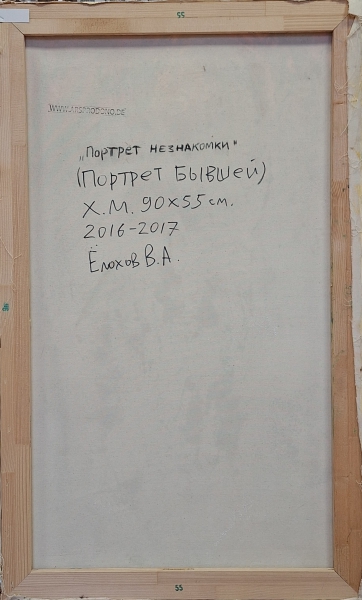 55
WWW.ARSPRODONO.DE
„Портрет незнакомки"
(Портрет Бывшей)
Х.М. 90х55см.
2016-2017
Ёлохов В.А.
55